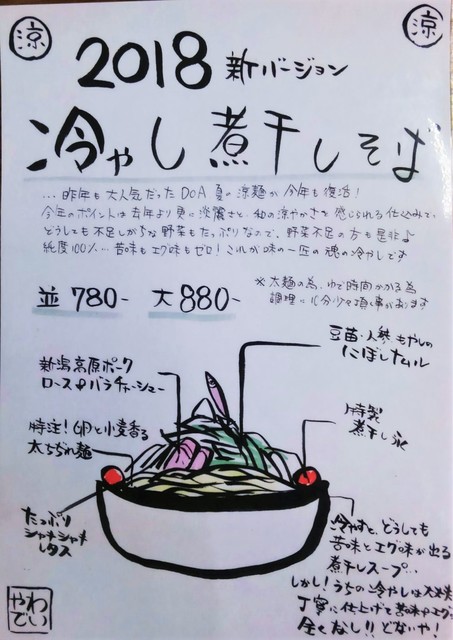 涼
涼
2018 新バージョン
冷やし煮干しそば
…昨年も大人気だったDOA夏の涼麺が今年も復活!
今年のポイントは去年より更に淡麗さと、和の涼やかさを感じられる仕込みで、
どうしても不足しがちな野菜もたっぷりなので、野菜不足の方も是非♪
純度100%…苦味もエグ味もゼロ!これが味の一匠の魂の冷やしです
並780- 大880-
※太麺の為、ゆで時間かかる為
調理に 分少々頂く事があります
豆苗・人参・もやしの
にぼしナムル
新潟高原ポーク
ロース&バラチャーシュー
特製
煮干し氷
特注!卵と小麦香る
太ちぢれ麺
たっぷり
シャキシャキ
レタス
冷やすと、どうしても
苦味とエグ味が出る
煮干しスープ…
しかし!うちの冷やしは大丈夫
丁寧に仕上げて苦味やエグ
全くなし!!どないや!
わい
やで